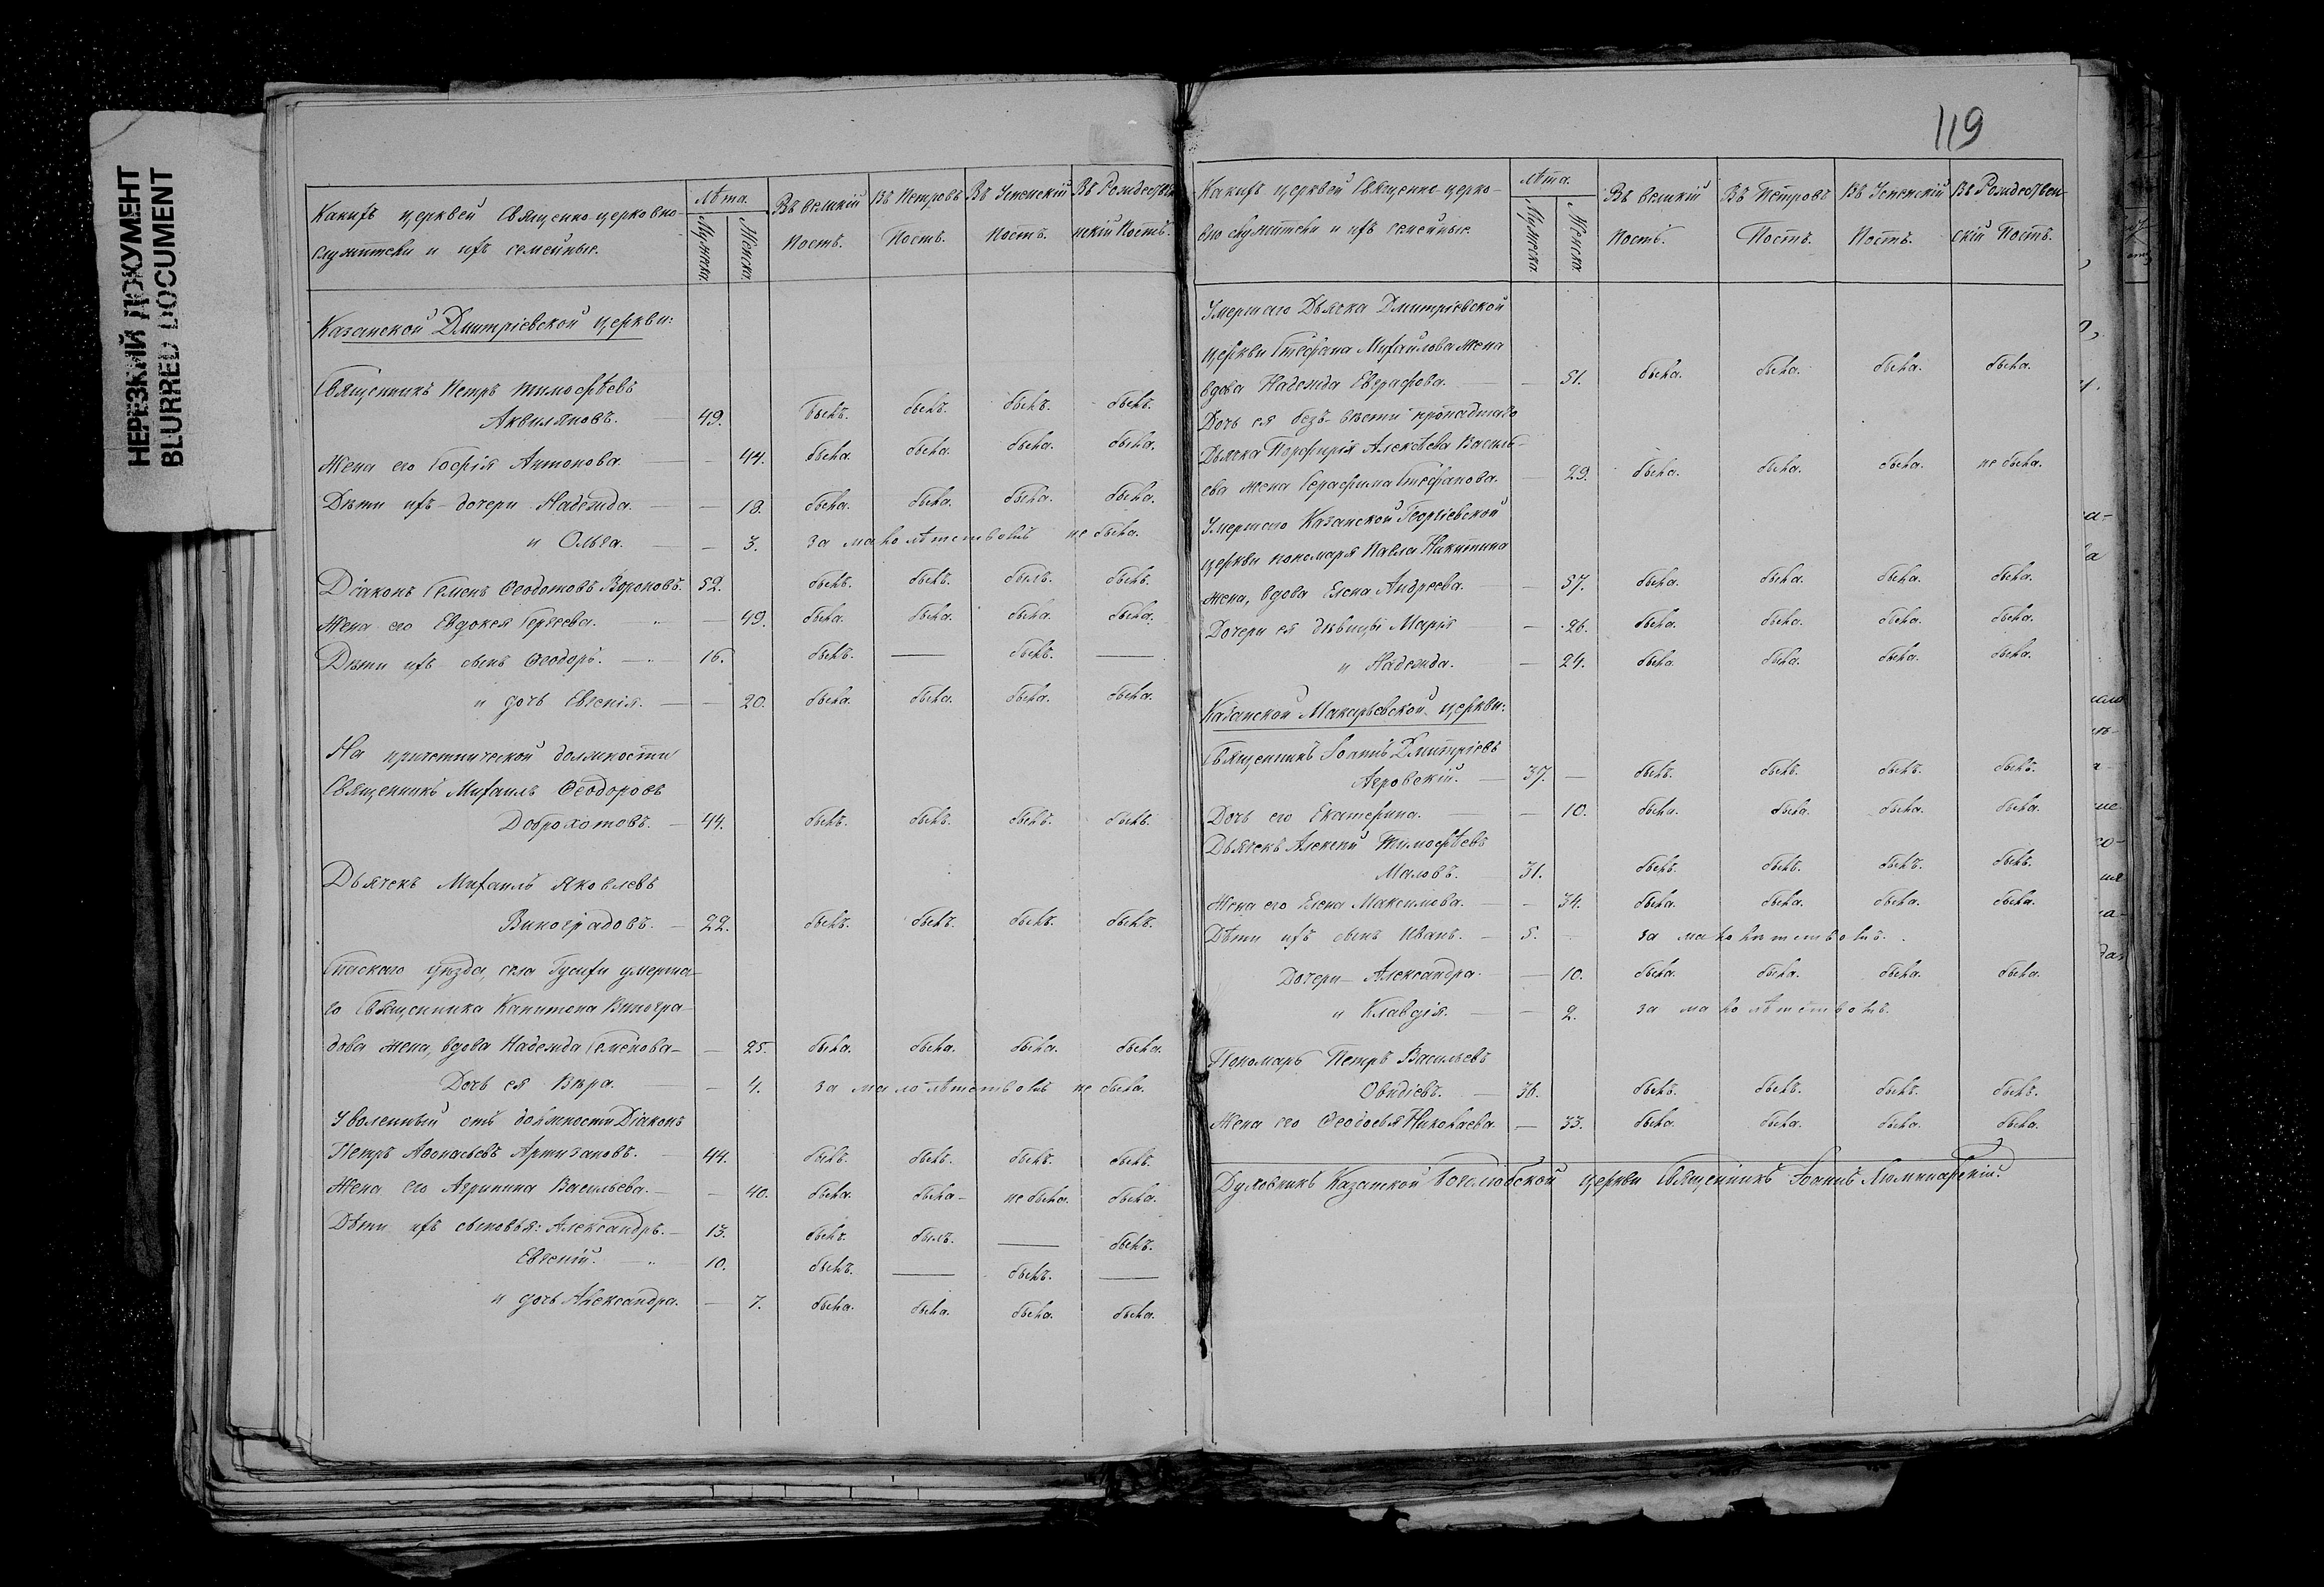 НЕРЕЗКИЙ ДОКУМЕНТ
BLURRED DOCUMENT
Какихъ церквей Священно-церковно-
служители и ихъ семейные.
Лѣта.
Мужеска.
Женска.
Въ великій Постъ.
Въ Петровъ Постъ.
Въ Успенскій Постъ.
Въ Рождествен-
скій Постъ.
Казанской Дмитріевской церкви:
Священникъ Петръ Тимофѣевъ
Аквиляновъ. 49. былъ. былъ. былъ. былъ.
Жена его Софія Антонова. — 44. была. была. была. была.
Дѣти ихъ – дочери Надежда. — 18. была. была. была. была.
и Ольга. — 3. за малолѣтствомъ не была.
Діаконъ Семенъ Ѳеодотовъ Вороновъ. 52. былъ. былъ. былъ. былъ.
Жена его Евдокея Сергеева. — 49. была. была. была. была.
Дѣти ихъ сынъ Ѳеодоръ. 16. былъ. — былъ. —
и дочь Евгенія. — 20. была. была. была. была.
На причетнической должности
Священникъ Михаилъ Ѳеодоровъ
Доброхотовъ. 44. былъ. былъ. былъ. былъ.
Дьячекъ Михаилъ Яковлевъ
Виноградовъ. 22. былъ. былъ. былъ. былъ.
Спаскаго уѣзда, села Гусихи умерша-
го Священника Капитона Виногра-
дова жена, вдова Надежда Семенова — 25. была. была. была. была.
Дочь ея Вѣра. — 4. за малолѣтствомъ не была.
Уволенный отъ должности Діаконъ
Петръ Аѳонасьевъ Артизановъ. 44. былъ. былъ. былъ. былъ.
Жена его Агрипина Васильева. — 40. была. была – не была. была.
Дѣти ихъ сыновья: Александръ. 13. былъ. былъ. — былъ.
Евгеній. 10. былъ. — былъ. —
и дочь Александра. — 7. была. была. была. была.
119
Какихъ церквей Священно-церко-
вно служители и ихъ семейные
Лѣта.
Мужеска.
Женска.
Въ великій Постъ.
Въ Петровъ Постъ.
Въ Успенскій Постъ.
Въ Рождествен-
скій Постъ.
Умершаго Дьячка Дмитріевской
церкви Стефана Михайлова жена
вдова Надежда Евграфова. — 51. была. была. была. была.
Дочь ея безъ-вѣсти пропадшаго
Дьячка Порфирія Алексѣева Василь-
ева жена Серафима Стефанова. — 29. была. была. была. не была.
Умершаго Казанской Георгіевской
церкви пономаря Павла Никитина
жена, вдова Елена Андреева. — 57. была. была. была. была.
Дочери ея дѣвицы Марія — 26. была. была. была. была.
и Надежда. — 24. была. была. была. была.
Казанской Макарьевской церкви:
Священникъ Іоаннъ Дмитріевъ
Агровскій. 37. — былъ. былъ. былъ. былъ.
Дочь его Екатерина. — 10. была. была. была. была.
Дьячекъ Алексій Тимофѣевъ
Маловъ. 31. былъ. былъ. былъ. былъ.
Жена его Елена Максимова. — 34. была. была. была. была.
Дѣти ихъ сынъ Иванъ. 5. за малолѣтствомъ.
Дочери – Александра. — 10. была. была. была. была.
и Клавдія. — 2. за малолѣтствомъ.
Пономарь Петръ Васильевъ
Овидіевъ. 36. былъ. былъ. былъ. былъ.
Жена его Ѳеодосья Николаева. — 33. была. была. была. была.
Духовникъ Казанской Боголюбской церкви Священникъ Іоаннъ Люминарскій.